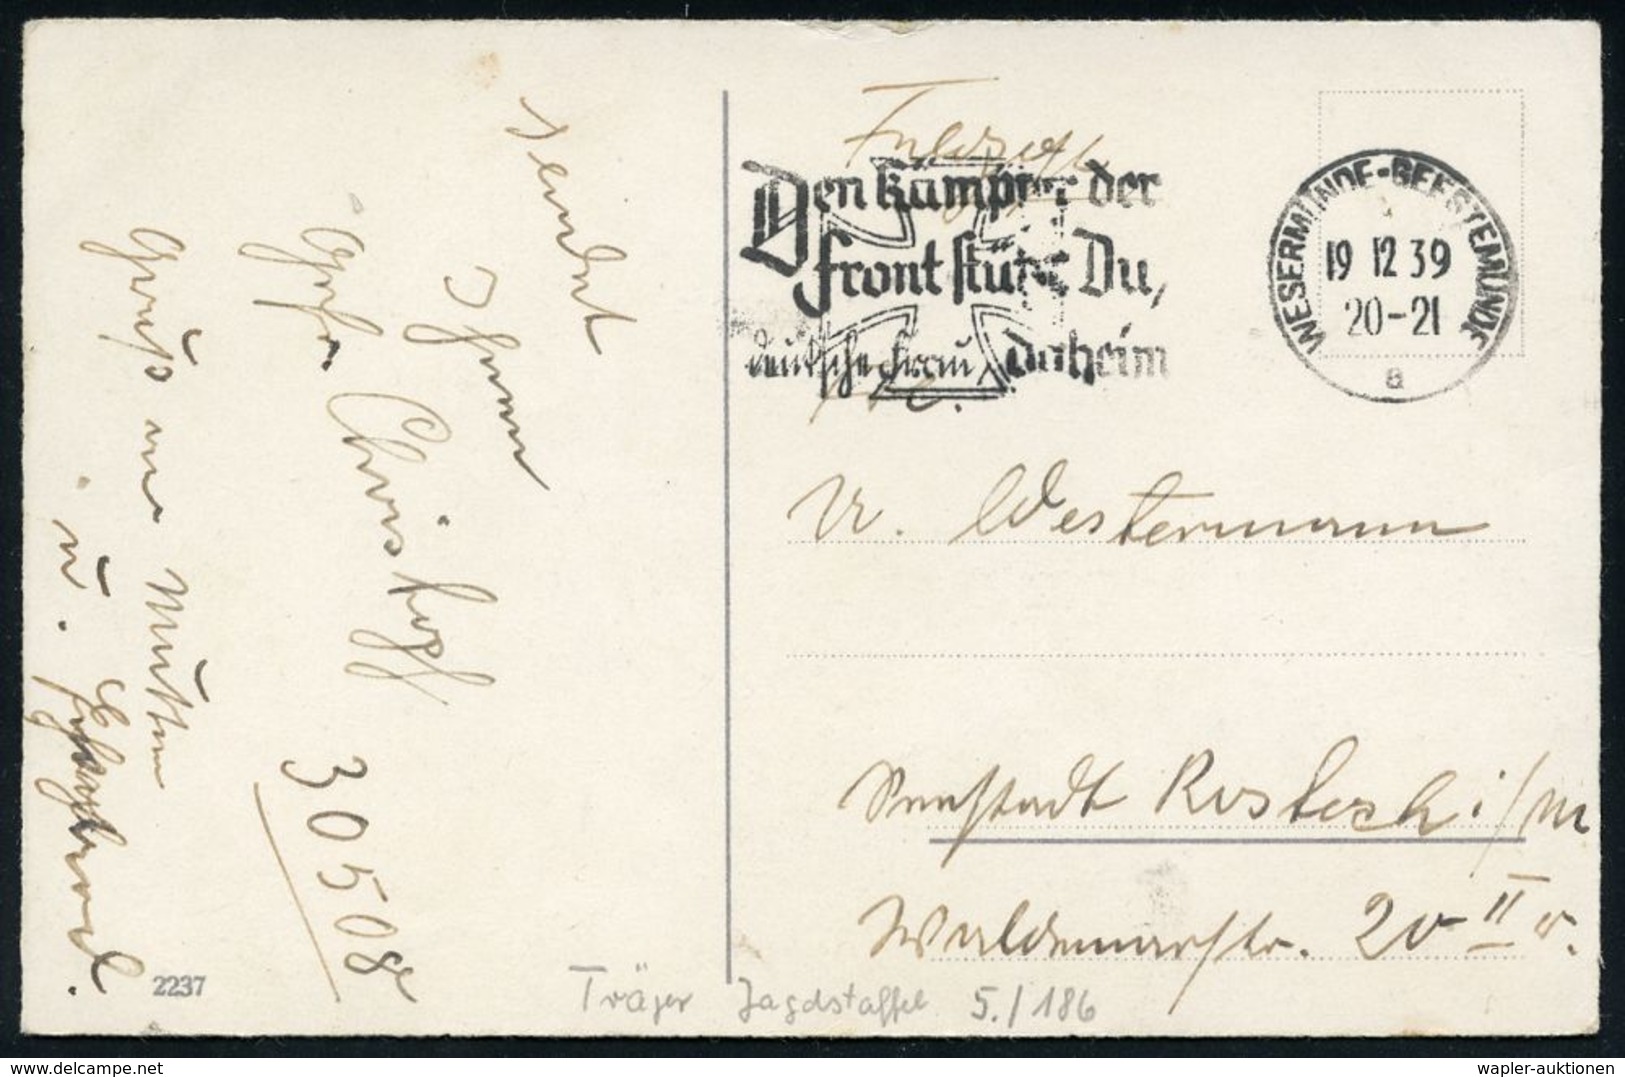 sendet
Ihnen
Gefr. Christoff
30508
Gruß an Muttern
u.
2237
Feldpost
Den Kämpfer der
Front stütze Du,
deutsche Frau, daheim
WESERMÜNDE-GEESTEMÜNDE
19 12 39
20-21
a
W. Westermann
Seestadt Rostock i/M
Waldemarstr. 20 II r.
Träger Jagdstaffel 5./186
www.delcampe.net
wapler-auktionen